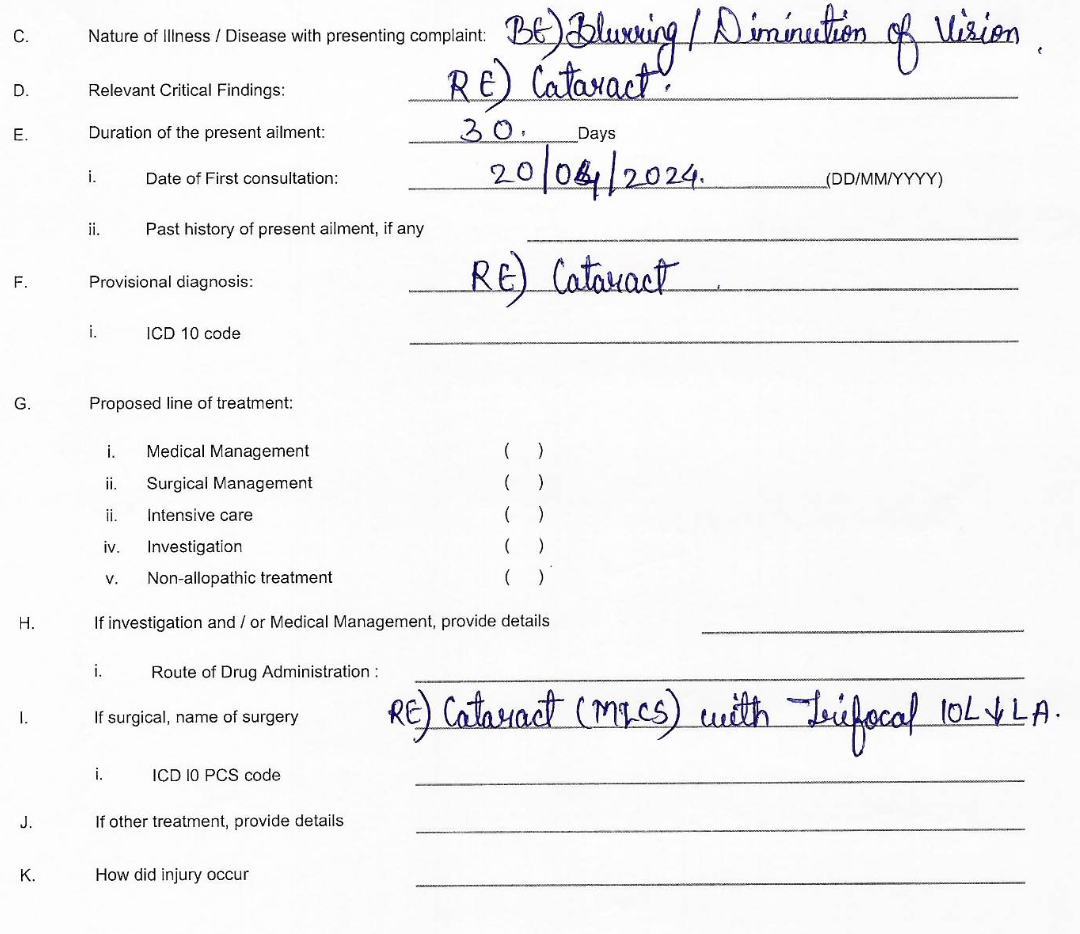 C. Nature of Illness / Disease with presenting complaint: BE) Blurring / Diminution of Vision.
D. Relevant Critical Findings: RE) Cataract.
E. Duration of the present ailment: 30. Days
i. Date of First consultation: 20/04/2024. (DD/MM/YYYY)
ii. Past history of present ailment, if any
F. Provisional diagnosis: RE) Cataract
i. ICD 10 code
G. Proposed line of treatment:
i. Medical Management ( )
ii. Surgical Management ( )
ii. Intensive care ( )
iv. Investigation ( )
v. Non-allopathic treatment ( )
H. If investigation and / or Medical Management, provide details
i. Route of Drug Administration :
I. If surgical, name of surgery RE) Cataract (MICS) with Trifocal IOL ↓ LA.
i. ICD I0 PCS code
J. If other treatment, provide details
K. How did injury occur